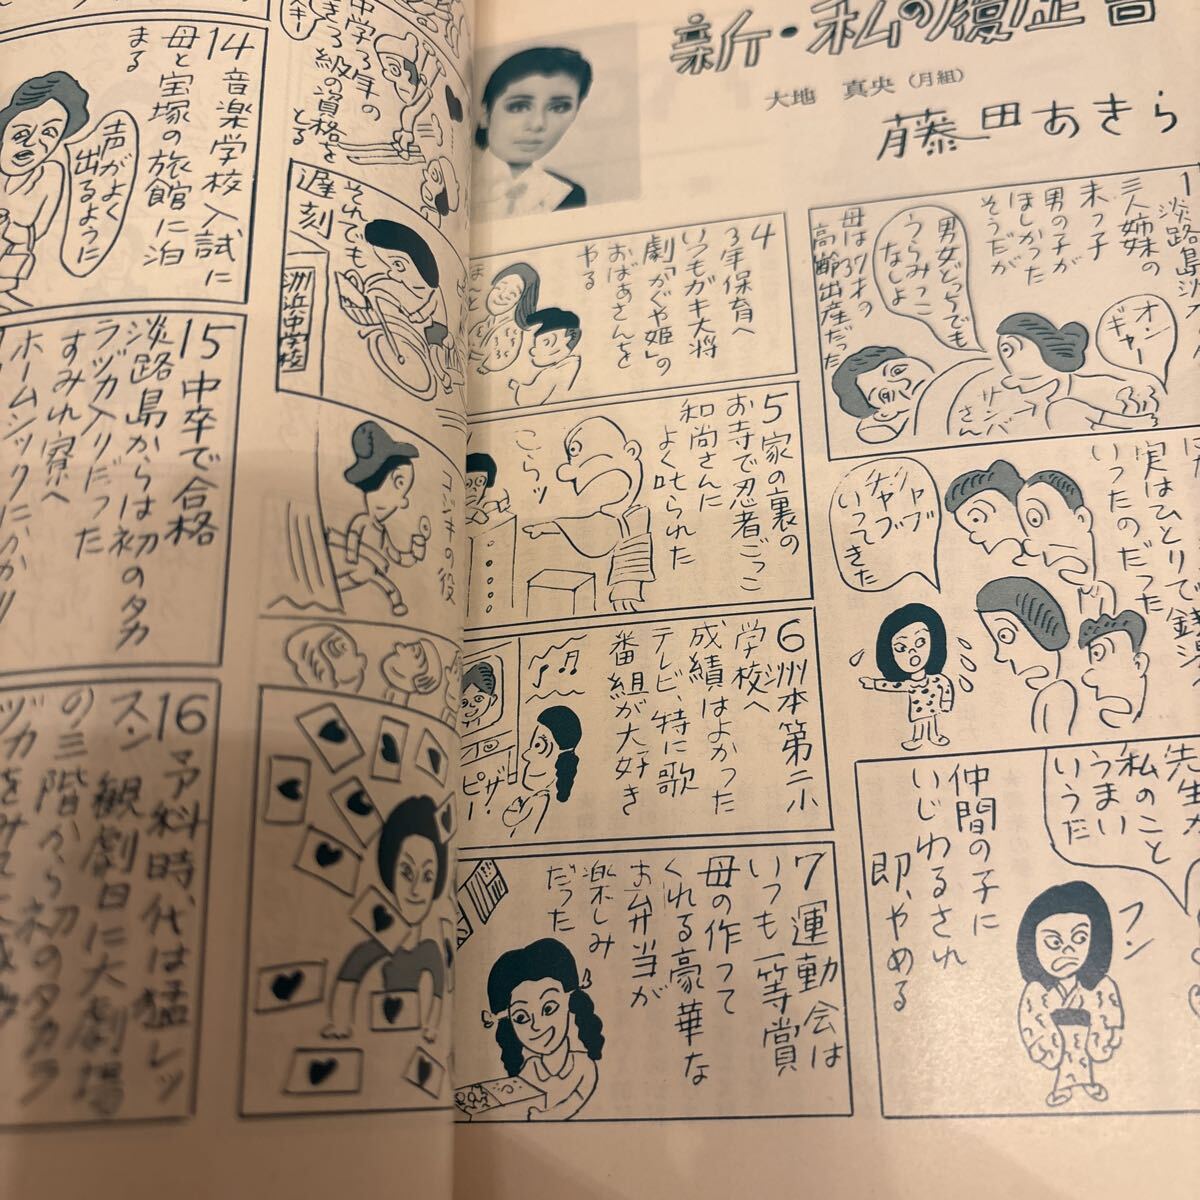 新・私の履歴書
大地 真央（月組）
藤田あきら
1 淡路島
三人姉妹の
末っ子
男の子が
ほしかった
そうだが
男女どっちでも
うらみっこ
なしよ
母は37才の
高齢出産だった
オンギャー
サンバさん
実はひとりで銭湯へ
いったのだった
ジャブ
ジャブ
いってきた
先生が
私のこと
うまい
いうだ
フン
仲間の子に
いじわるされ
即、やめる
4
3年保育へ
いつもガキ大将
劇「かぐや姫」の
おばあさんを
やる
5 家の裏の
お寺で忍者ごっこ
和尚さんに
よく叱られた
こらッ
6 洲本第二小
学校へ
成績はよかった
テレビ、特に歌
番組が大好き
ピーザー！
7 運動会は
いつも一等賞
母の作って
くれる豪華な
お弁当が
楽しみ
だった
中学3年の
とき3級の資格を
とる
それでも
遅刻
洲浜中学校
コジキの役
14 音楽学校入試に
母と宝塚の旅館に泊
まる
声がよく
出るように
15 中卒で合格
淡路島からは初のタカ
ラヅカ入りだった
すみれ寮へ
ホームシックにかかり
16 予科時代は猛レッ
スン 観劇日に大劇場
の三階から初のタカラ
ヅカをみて